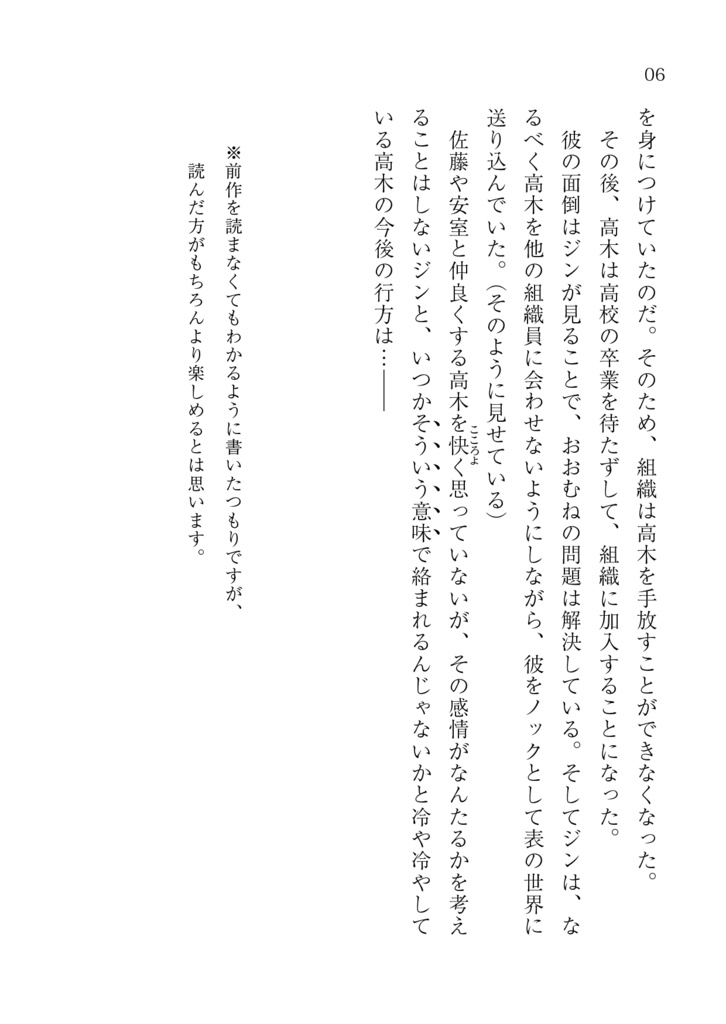 06
を身につけていたのだ。そのため、組織は高木を手放すことができなくなった。
その後、高木は高校の卒業を待たずして、組織に加入することになった。
彼の面倒はジンが見ることで、おおむねの問題は解決している。そしてジンは、な
るべく高木を他の組織員に会わせないようにしながら、彼をノックとして表の世界に
送り込んでいた。（そのように見せている）
佐藤や安室と仲良くする高木を快く思っていないが、その感情がなんたるかを考え
こころよ
ることはしないジンと、いつかそういう意味で絡まれるんじゃないかと冷や冷やして
いる高木の今後の行方は…――
※前作を読まなくてもわかるように書いたつもりですが、
読んだ方がもちろんより楽しめるとは思います。